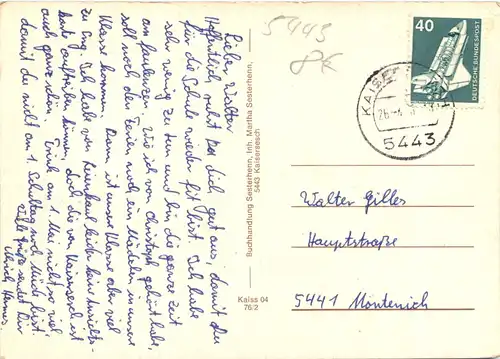 Lieber Walter
Hoffentlich ruhst Du dich gut aus, damit Du
für die Schule wieder fit bist. Ich habe
sehr wenig zu tun und bin die ganze Zeit
am faulenzen. Wie ich von Christoph gehört habe,
soll nach den Ferien noch ein Mädchen in unsere
Klasse kommen. Dann ist unsere Klasse aber viel
zu eng. Ich habe von leider keine Ansichts-
karte auftreiben können, doch die von Kaisersesch ist
auch ganz schön. Trink am 1. Mai nicht so viel,
damit du nicht am 1. Schultag noch müde bist.
Viele Grüße sendet Dir
Ulrich
5443
8€
Buchhandlung Sesterhenn, Inh. Martha Sesterhenn,
5443 Kaisersesch
Kaiss 04
76/2
40
DEUTSCHE BUNDESPOST
KAISE
5443
Walter Gilles
Hauptstraße
5441 Müntenich